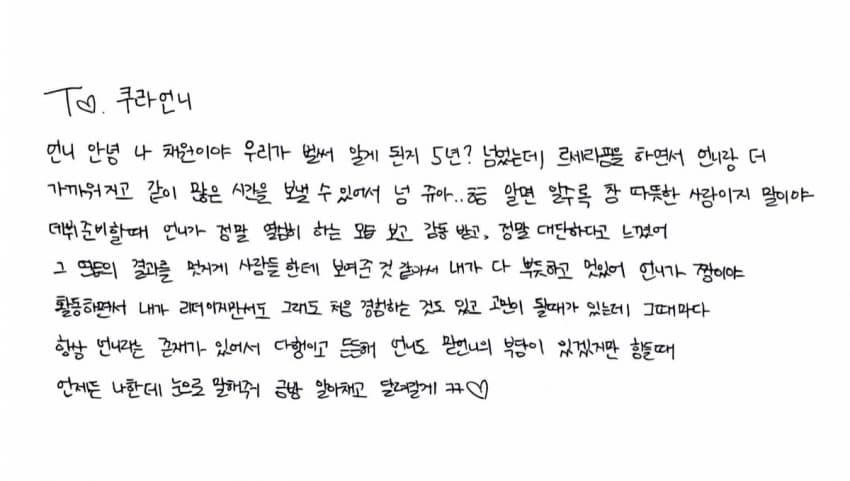 To. 쿠라언니
언니 안녕 나 채원이야 우리가 벌써 알게 된지 5년? 넘었는데, 르세라핌을 하면서 언니랑 더
가까워지고 같이 많은 시간을 보낼 수 있어서 넘 쥬아.. 알면 알수록 참 따뜻한 사람이지 말이야
데뷔준비할때 언니가 정말 열심히 하는 모습 보고 감동 받고, 정말 대단하다고 느꼈어
그 연습의 결과를 멋지게 사람들한테 보여준 것 같아서 내가 다 뿌듯하고 멋있어 언니가 짱이야
활동하면서 내가 리더이지만서도 그래도 처음 경험하는 것도 있고 고민이 될때가 있는데 그때마다
항상 언니라는 존재가 있어서 다행이고 든든해 언니도 맏언니의 부담이 있겠지만 힘들때
언제든 나한데 눈으로 말해줘 금방 알아채고 달려갈게 ㅋㅋ♡